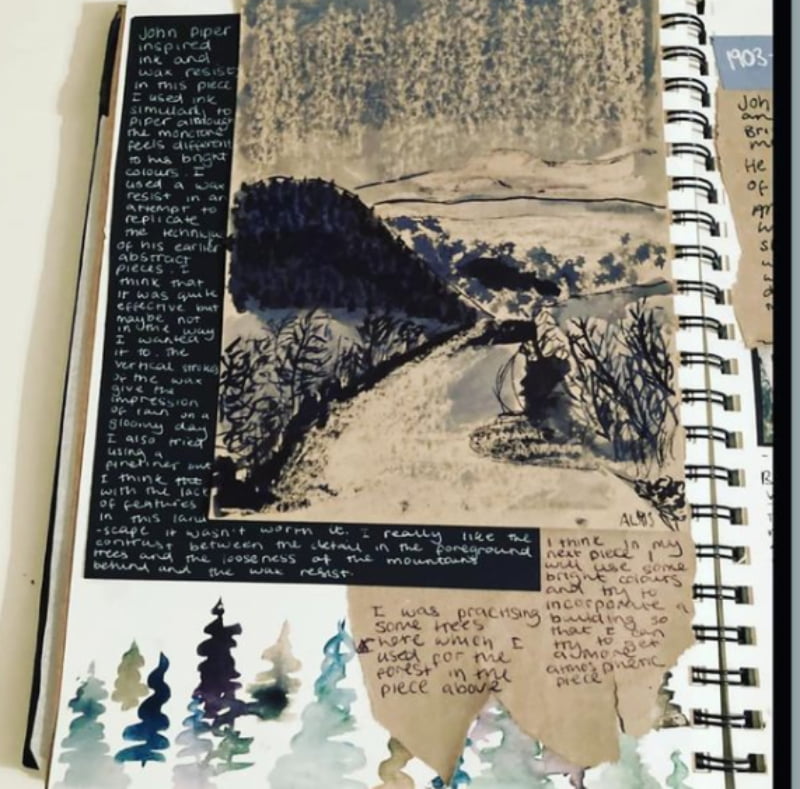 John Piper
inspired
ink and
wax resist
in this piece
I used ink
similarly to
Piper although
the monotone
feels different
to his bright
colours. I
used a wax
resist in an
attempt to
replicate
the technique
of his earlier
abstract
pieces. I
think that
it was quite
effective but
maybe not
in the way
I wanted
it to. The
vertical strokes
of the wax
give the
impression
of rain on a
gloomy day
I also tried
using a
fineliner but
I think
with the lack
of features
in this land
-scape it wasn't worth it. I really like the
contrast between the detail in the foreground
trees and the looseness of the mountains
behind and the wax resist.
I think in my
next piece I
will use some
bright colours
and try to
incorporate a
building so
that I can
try to get
a more
atmospheric
piece
I was practising
some trees
here which I
used for the
forest in the
piece above
1903-
Joh
an
Bri
m
He
of